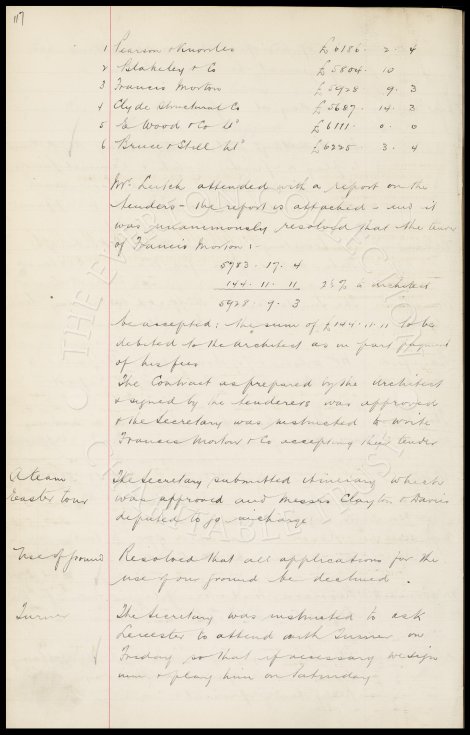 117
1 Pearson & Knowles £6186. 2. 4
2 Blakeley & Co £5804. 10
3 Francis Morton £5928. 9. 3
4 Clyde Structural Co £5687. 14. 3
5 E Wood & Co Ltd £6111. 0. 0
6 Bruce & Still Ltd £6225. 3. 4
Mr. Leitch attended with a report on the
tenders - the report is attached - and it
was unanimously resolved that the tender
of Francis Morton :-
5783. 17. 4
144. 11. 11 2½% to architect
5928. 9. 3
be accepted: the sum of £144.11.11 to be
debited to the architect as in part payment
of his fees
The Contract as prepared by the architect
& signed by the tenderers was approved
& the Secretary was instructed to write
Francis Morton & Co accepting their tender
A team The Secretary submitted itinerary which
Easter tour was approved and Messrs Clayton & Davies
deputed to go in charge
Use of ground Resolved that all applications for the
use of our ground be declined.
Turner The Secretary was instructed to ask
Leicester to attend with Turner on
Friday so that if necessary we sign
him & play him on Saturday
THE EVERTON COLLECTION
CHARITABLE TRUST